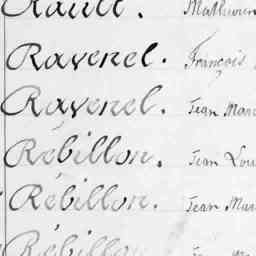 Rault. Mathurin
Ravenel. François
Ravenel. Jean Marie
Rébillon. Jean Lou
Rébillon. Jean Mar
Rébillon